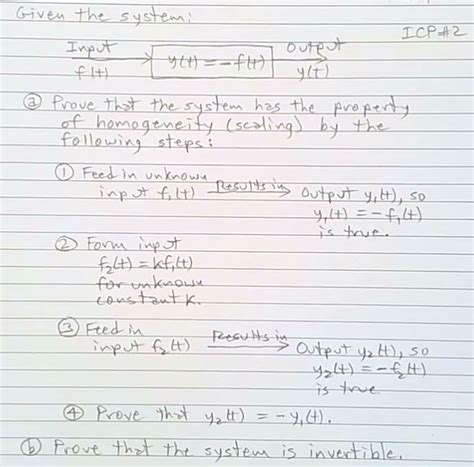 Given the system:
ICP#2
Input
Output
f(t)
y(t) = -f(t)
y(t)
ⓐ Prove that the system has the property
of homogeneity (scaling) by the
following steps:
① Feed in unknown
input f₁(t) Results in Output y₁(t), so
y₁(t) = -f₁(t)
is true.
② Form input
f₂(t) = kf₁(t)
for unknown
constant k.
③ Feed in
input f₂(t) Results in Output y₂(t), so
y₂(t) = -f₂(t)
is true
④ Prove that y₂(t) = -y₁(t).
ⓑ Prove that the system is invertible.